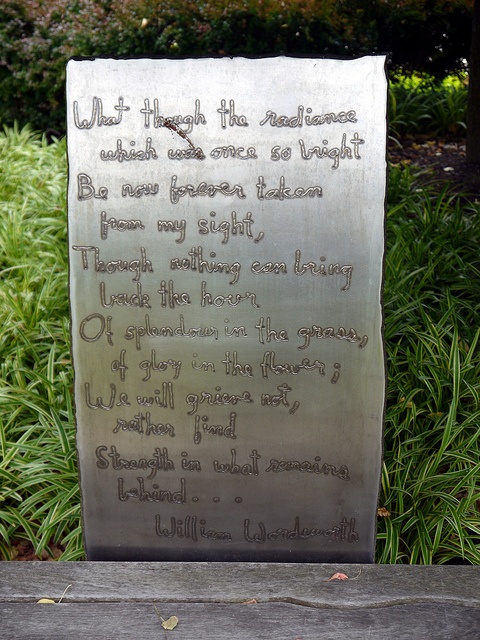 What though the radiance
which was once so bright
Be now forever taken
from my sight,
Though nothing can bring
back the hour
Of splendour in the grass,
of glory in the flower;
We will grieve not,
rather find
Strength in what remains
behind....
William Wordsworth